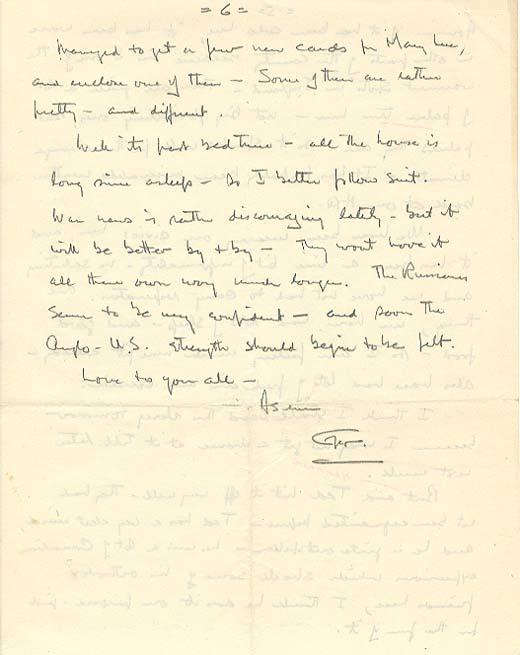 = 6 =
Managed to get a few new cards for Mary Lee,
and enclose one of them - Some of them are rather
pretty - and different.
Well its past bedtime - all the house is
long since asleep - So I better follow suit.
War news is rather discouraging lately - but it
will be better by + by - They wont have it
all their own way much longer. The Russians
seem to be very confident - and soon the
Anglo-U.S. strength should begin to be felt.
Love to you all -
As ever